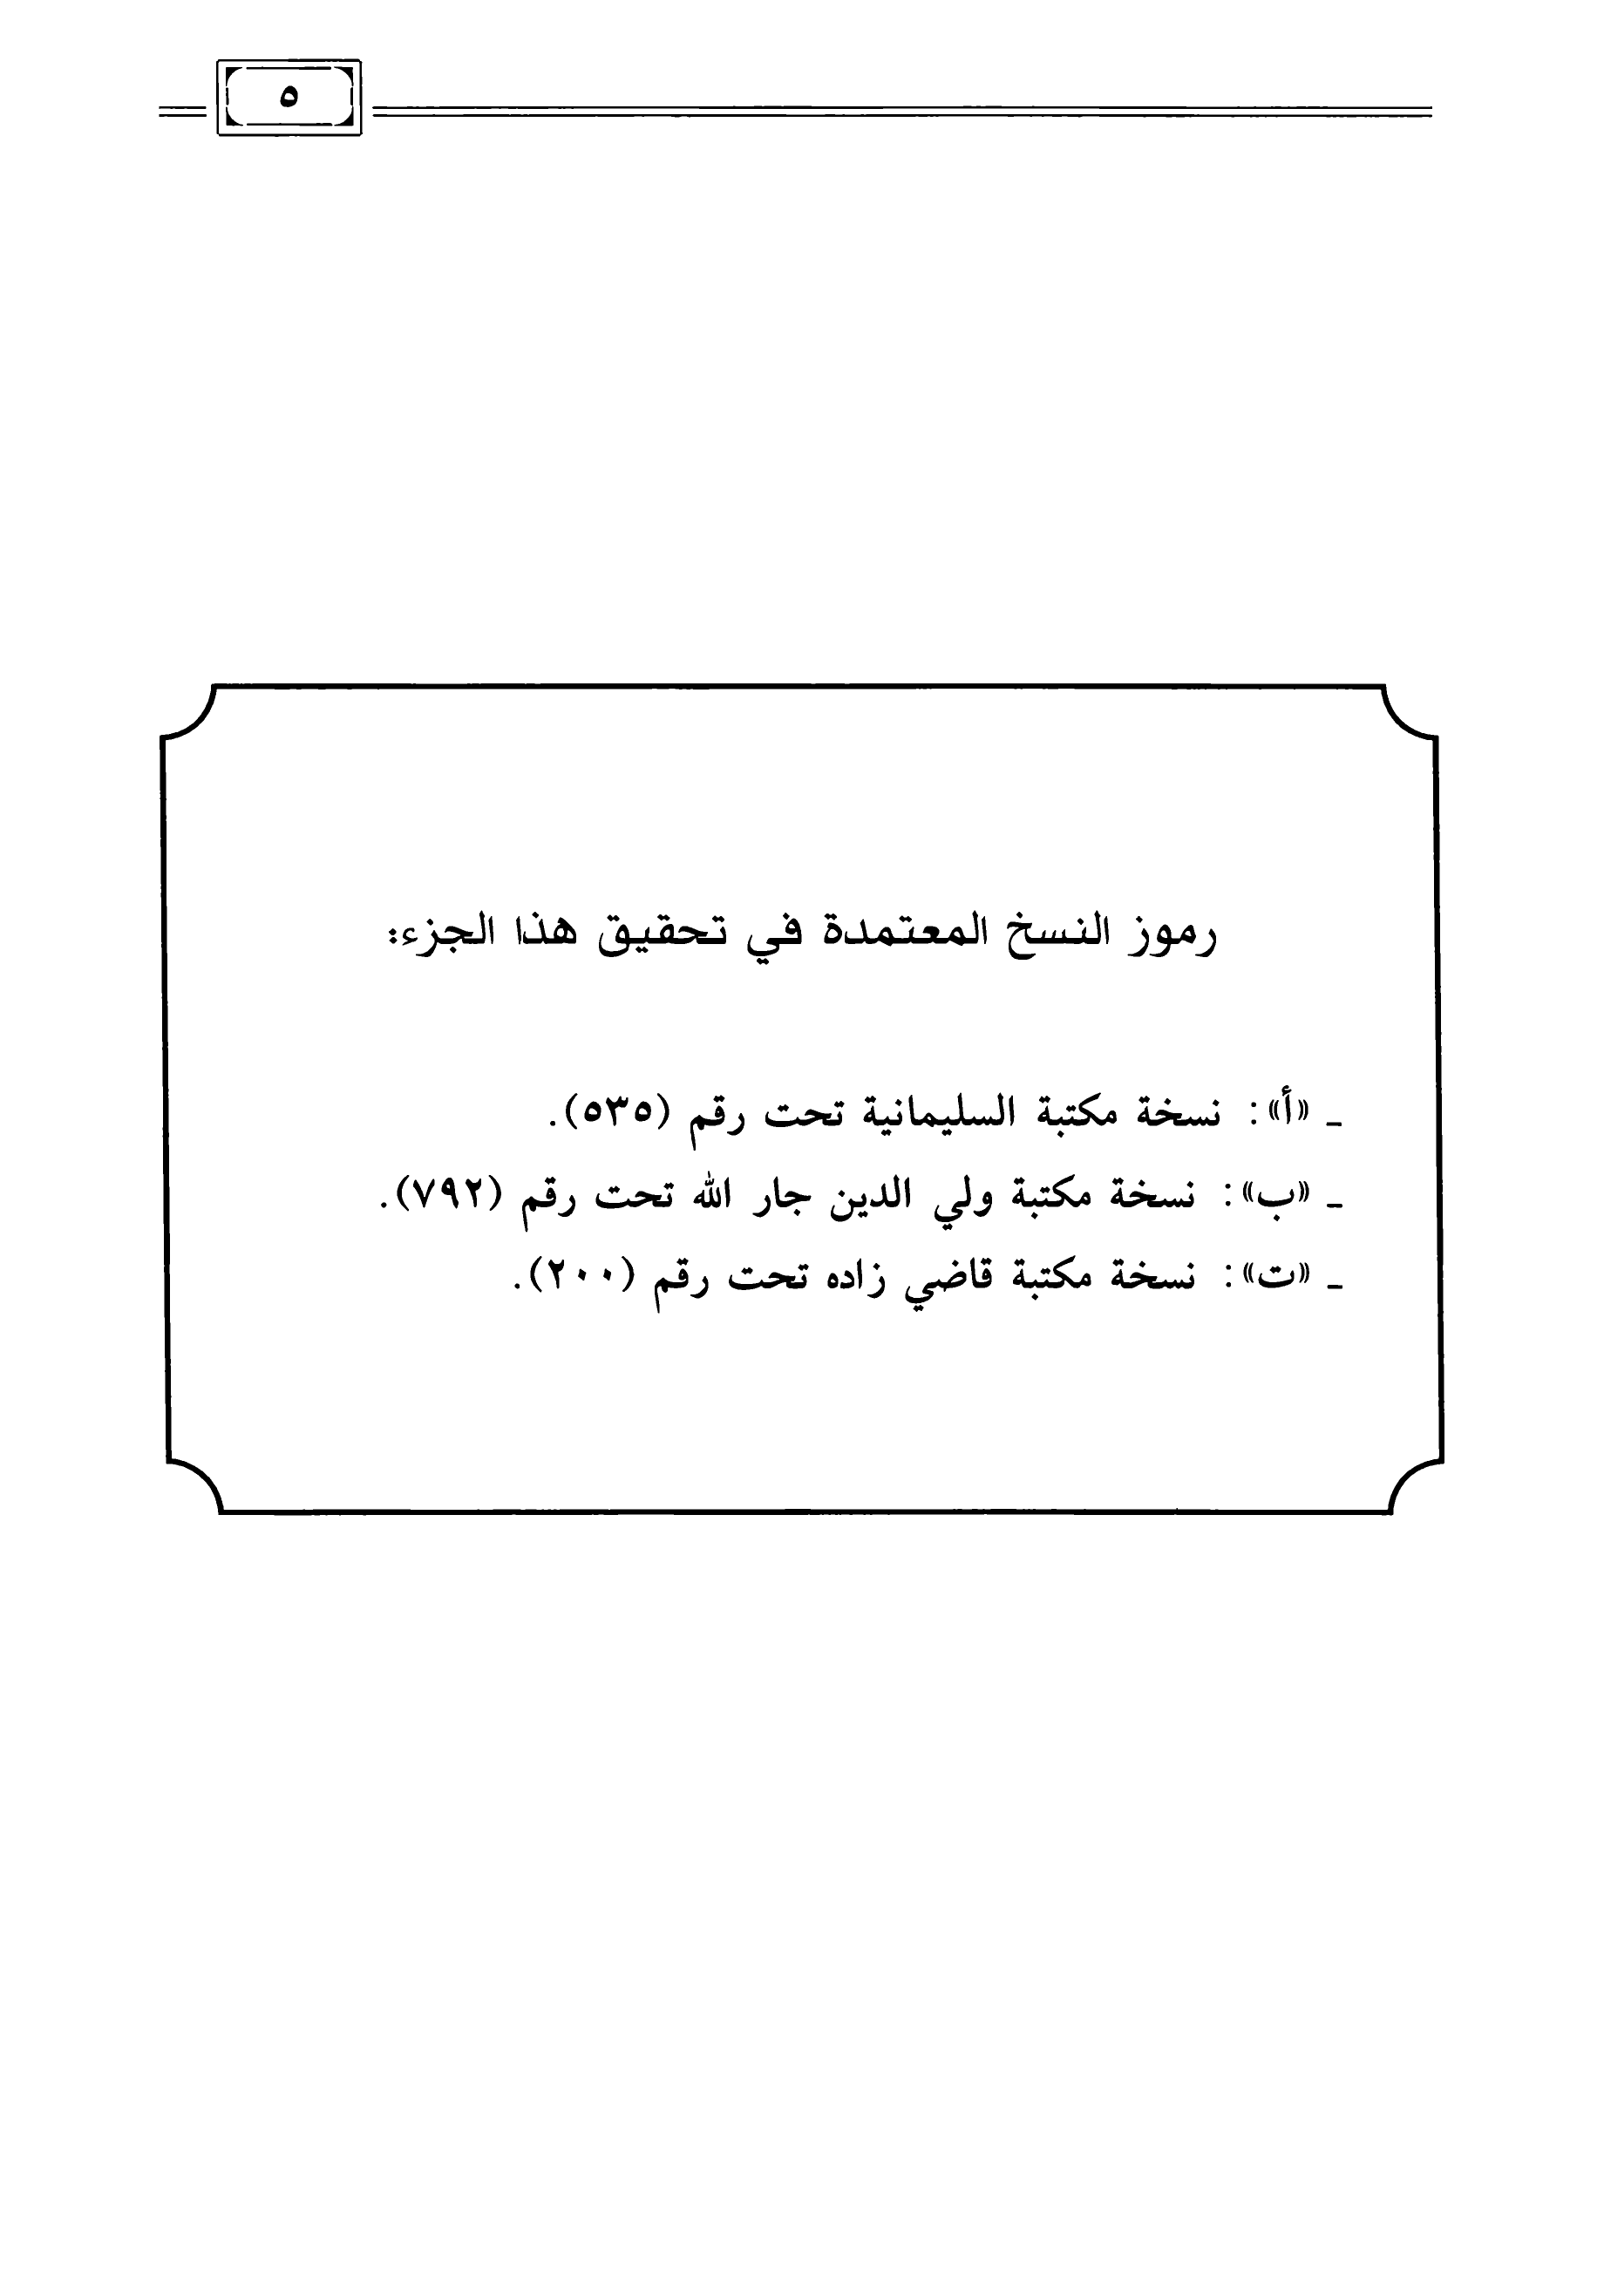 ٥
رموز النسخ المعتمدة في تحقيق هذا الجزء:
ـ «أ»: نسخة مكتبة السليمانية تحت رقم (٥٣٥).
ـ «ب»: نسخة مكتبة ولي الدين جار الله تحت رقم (٧٩٢).
ـ «ت»: نسخة مكتبة قاضي زاده تحت رقم (٢٠٠).